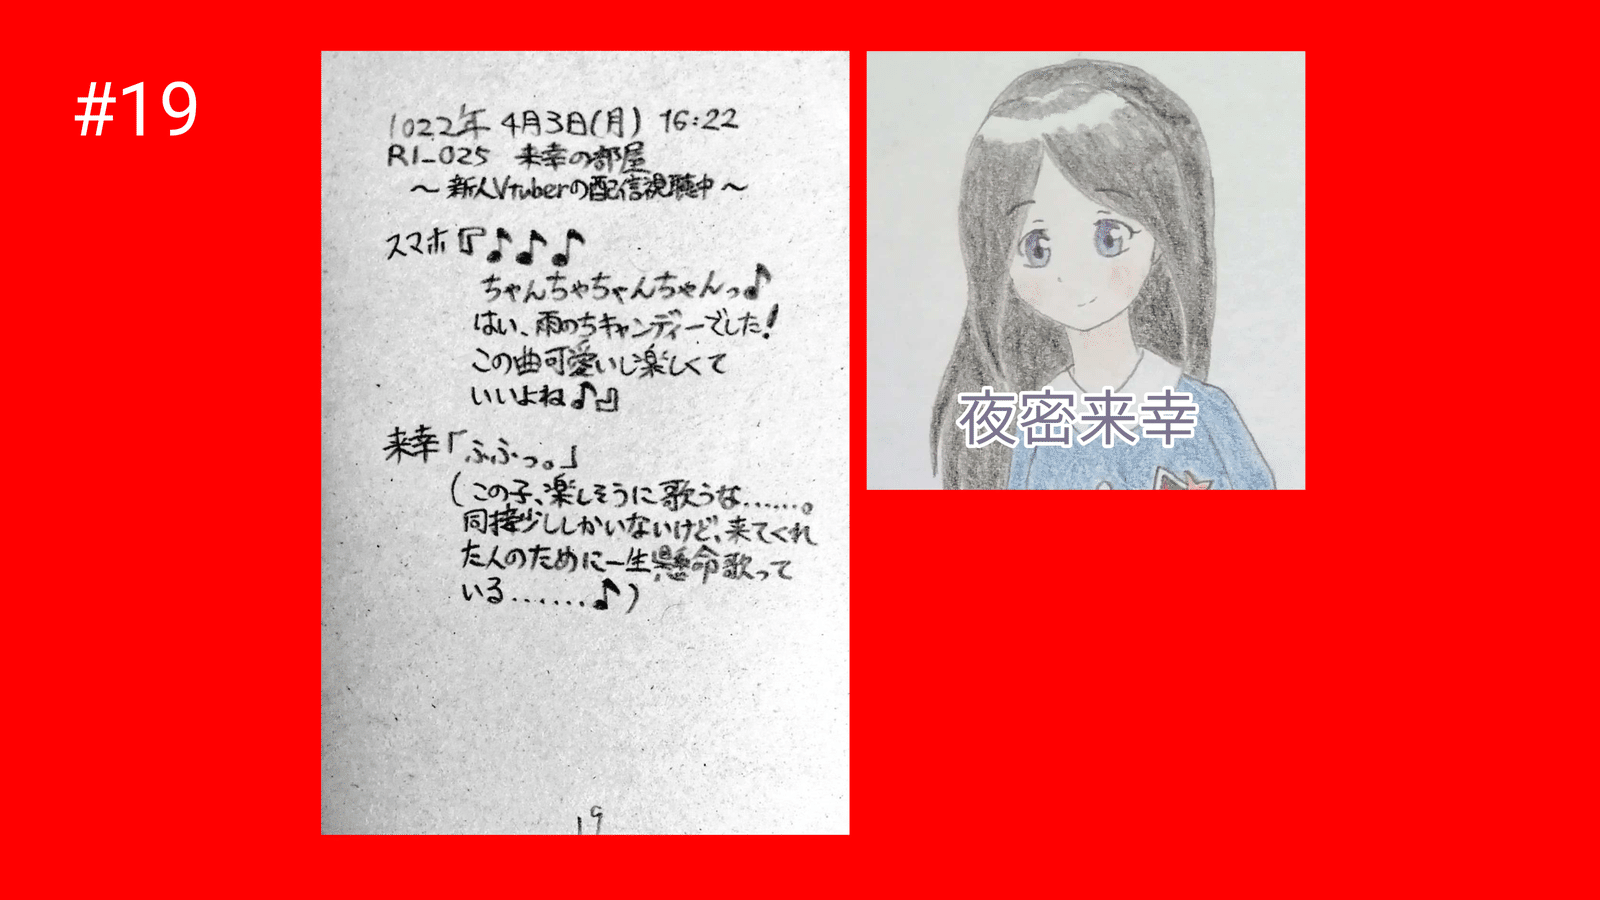 #19
1022年 4月3日(月) 16:22
R1_025 来幸の部屋
～新人Vtuberの配信視聴中～
スマホ『♪♪♪
ちゃんちゃちゃんちゃんっ♪
はい、雨のちキャンディーでした！
この曲可愛いし楽しくて
いいよね♪』
来幸「ふふっ。」
(この子、楽しそうに歌うな……。
同接少ししかいないけど、来てくれ
た人のために一生懸命歌って
いる.......♪)
19
夜密来幸